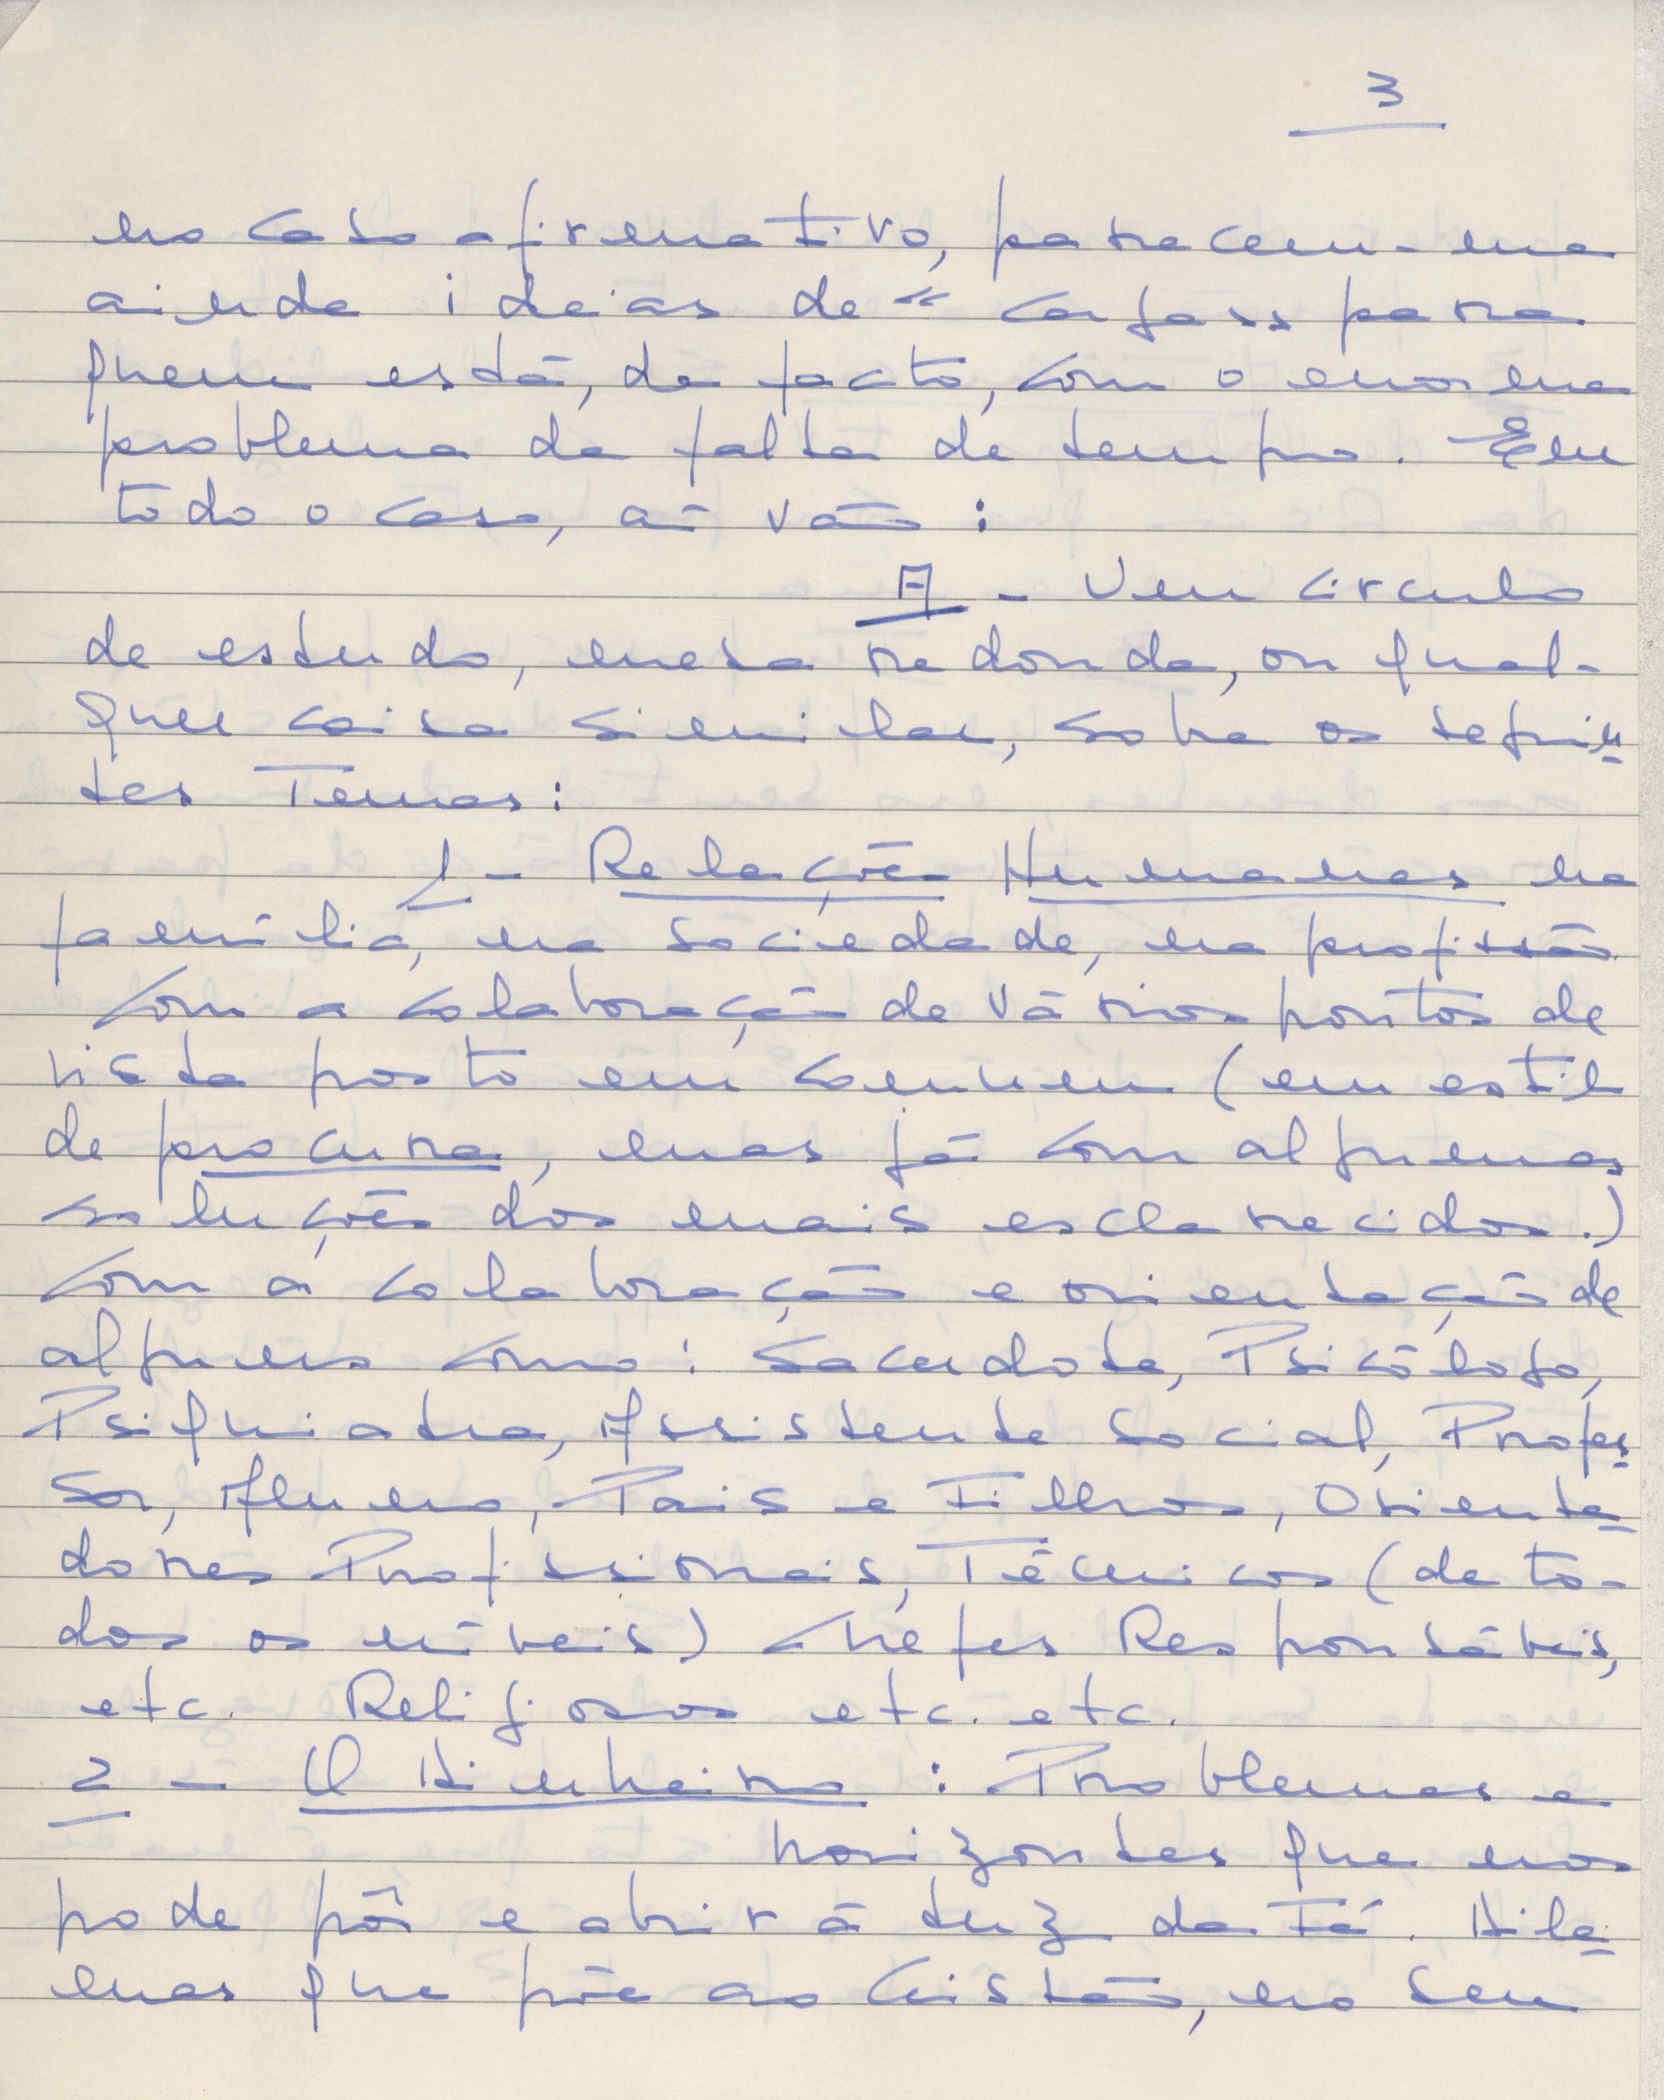 3
no caso afirmativo, parecem-me
ainda ideias de "
quem está, de facto, com o enorme
problema da falta de tempo. Em
todo o caso, aí vão:
A - Um circulo
de estudo, mesa redonda, ou qual-
quer coisa similar, sobre os seguin
tes Temas:
1 - Relações Humanas na
família, na sociedade, na profissão
Com a colaboração de vários pontos de
vista posto em comum (em estil
de procura, mas já com algumas
soluções dos mais esclarecidos.)
Com a colaboração e orientação de
alguns como: Sacerdote, Psicólogo,
Psiquiatra, Assistente Social, Profes
sor, Aluno, Pais e Filhos, Orienta
dores Profissionais, Técnicos (de to-
dos os níveis) Chefes Responsáveis,
etc. Religiosos etc. etc.
2 - O Dinheiro: Problemas e
horizontes que nos
pode pôr e abrir à luz da Fé. Dile
mas que põe ao Cristão, no seu